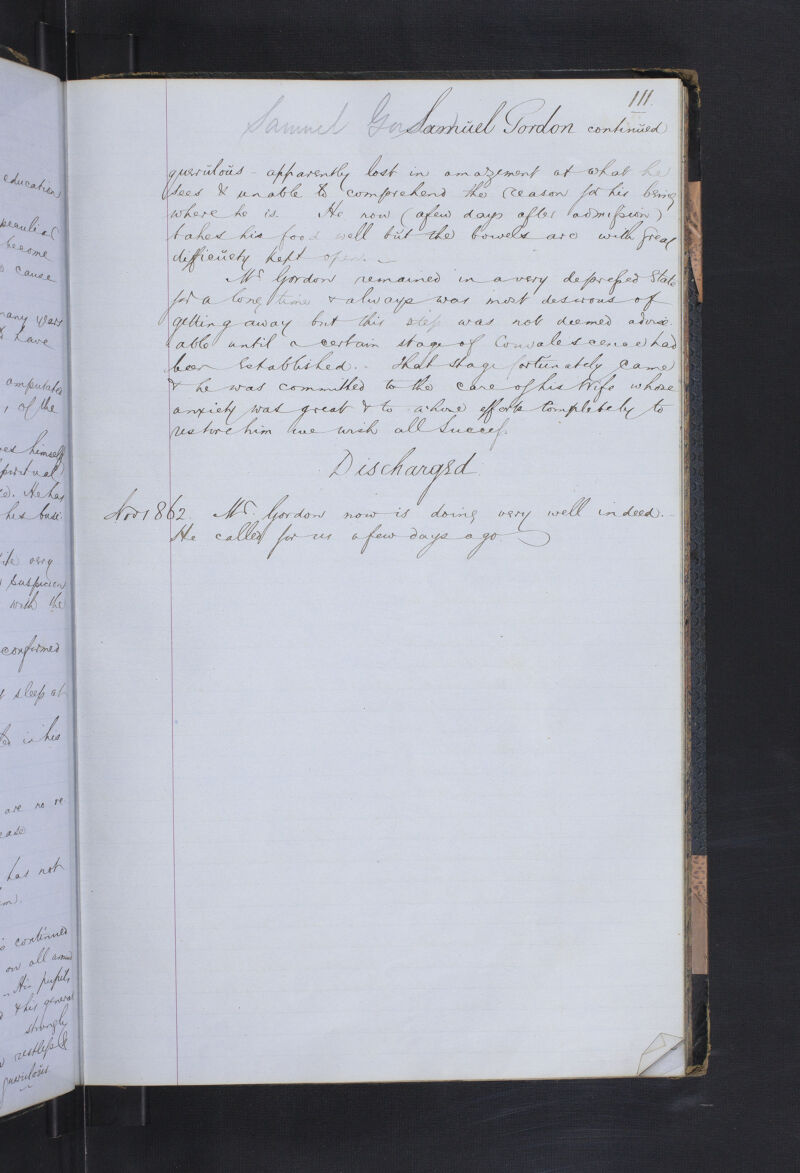 education
peculiar
become
cause
many years
& have
amputated
, of the
himself
He has
his busi-
very
suspicion
with the
confirmed
sleep at
in his
are no re
has not
continued
on all
His pupils
& his general
strongly
restless &
querulous
111.
Samuel Samuel Gordon continued
querulous - apparently lost in amazement at what he
sees & unable to comprehend the reason for his being
where he is. He now (a few days after admission)
takes his food well but the bowels are with great
difficulty kept open. -
Mr. Gordon remained in a very depressed State
for a long time & always was most desirous of
getting away but this step was not deemed advis-
able until a certain stage of Convalescence had
been Established. - That stage fortunately came
& he was committed to the care of his Wife whose
anxiety was great & to whose efforts Completely to
restore him we wish all Success.
Discharged
Nov 1862. Mr. Gordon now is doing very well indeed. -
He called for us a few days ago